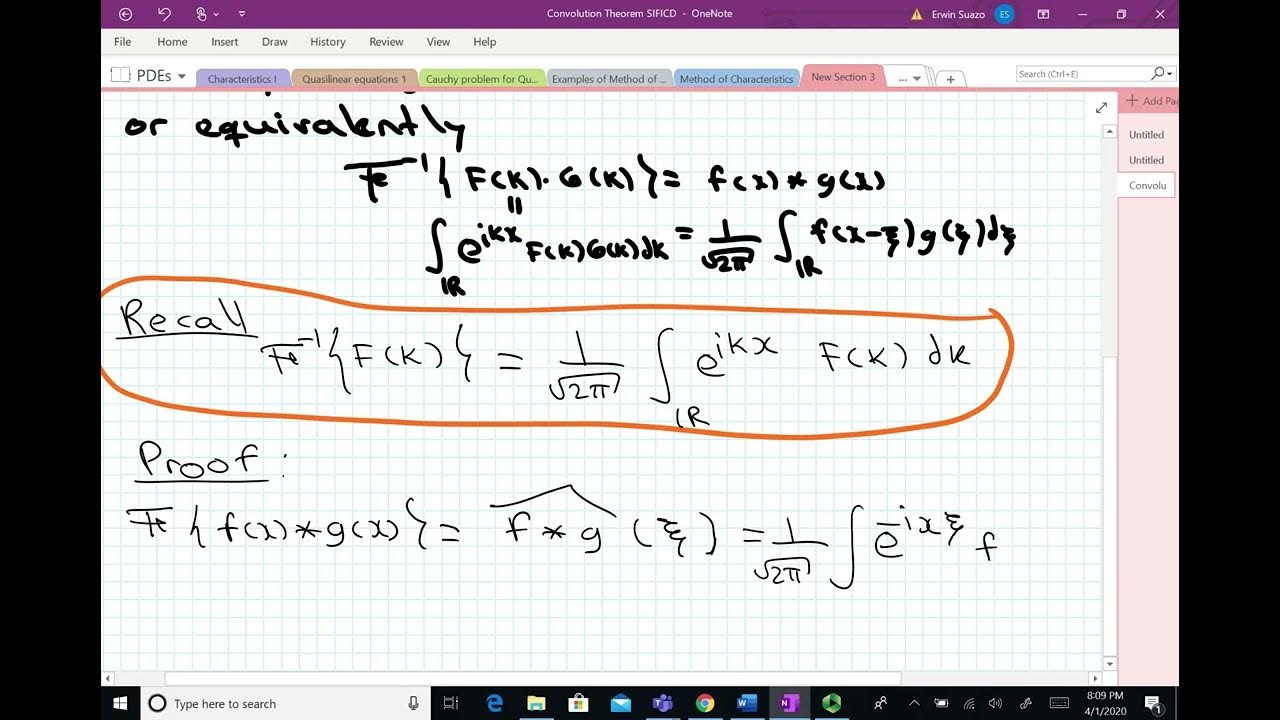 Convolution Theorem SIFICD - OneNote
Erwin Suazo ES
File Home Insert Draw History Review View Help
PDEs Characteristics I Quasilinear equations 1 Cauchy problem for Qu... Examples of Method of ... Method of Characteristics New Section 3 ... + Search (Ctrl+E)
+ Add Pag
Untitled
Untitled
Convolu
or equivalently
F⁻¹{F(k)·G(k)} = f(x) * g(x)
||
∫_ℝ e^{ikx} F(k)G(k)dk = 1/√2π ∫_ℝ f(x-ξ)g(ξ)dξ
Recall
F⁻¹{F(k)} = 1/√2π ∫_ℝ e^{ikx} F(k) dk
Proof :
F{f(x)*g(x)} = \widehat{f*g}(ξ) = 1/√2π ∫ e^{-ixξ} f
Type here to search
8:09 PM
4/1/2020
1